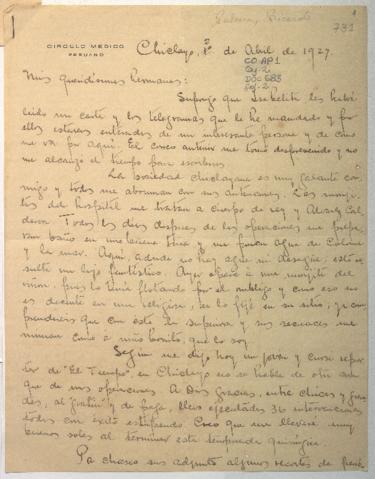 Palma, Ricardo
731
CIRCULO MEDICO
PERUANO
Chiclayo, 1º de Abril de 1927.
CO AP1
DOC 683
Mis queridísimos hermanos:
Supongo que Isabelita les habrá
leído mi carta y los telegramas que le he mandado y por
ellos estarán enterados de mi interesante persona y de cómo
me va por aquí. El correo anterior me tomó desprevenido y no
me alcanzó el tiempo para escribirles
La sociedad chiclayana es muy galante con-
migo y todos me abruman con sus atenciones. Las monji-
tas del hospital me tratan a cuerpo de rey
Todos los días despues de las operaciones me prepa-
ran baño en una tina y me ponen agua de Colonia
Aquí, adonde no hay agua ni desagüe, esto re-
sulta un lujo fantástico. Ayer operé a una monjita del
riñon, pues lo tenía flotando por el ombligo y como eso no
es decente en una religiosa, se lo fijé en su sitio; ya com-
prenderéis que con ésto la superiora y sus secuaces me
miman como a niño bonito, que lo soy.
Según me dijo hoy un joven y cursi repor-
ter de "El Tiempo", en Chiclayo no se habla de otra cosa
que de mis operaciones. A Dios Gracias, entre chicas y gran-
des, llevo ejecutadas 36 intervenciones
todas con éxito estupendo. Creo que me llevaré muy
buenos soles al terminar esta temporada quirúrgica.
adjunto algunos recortes de